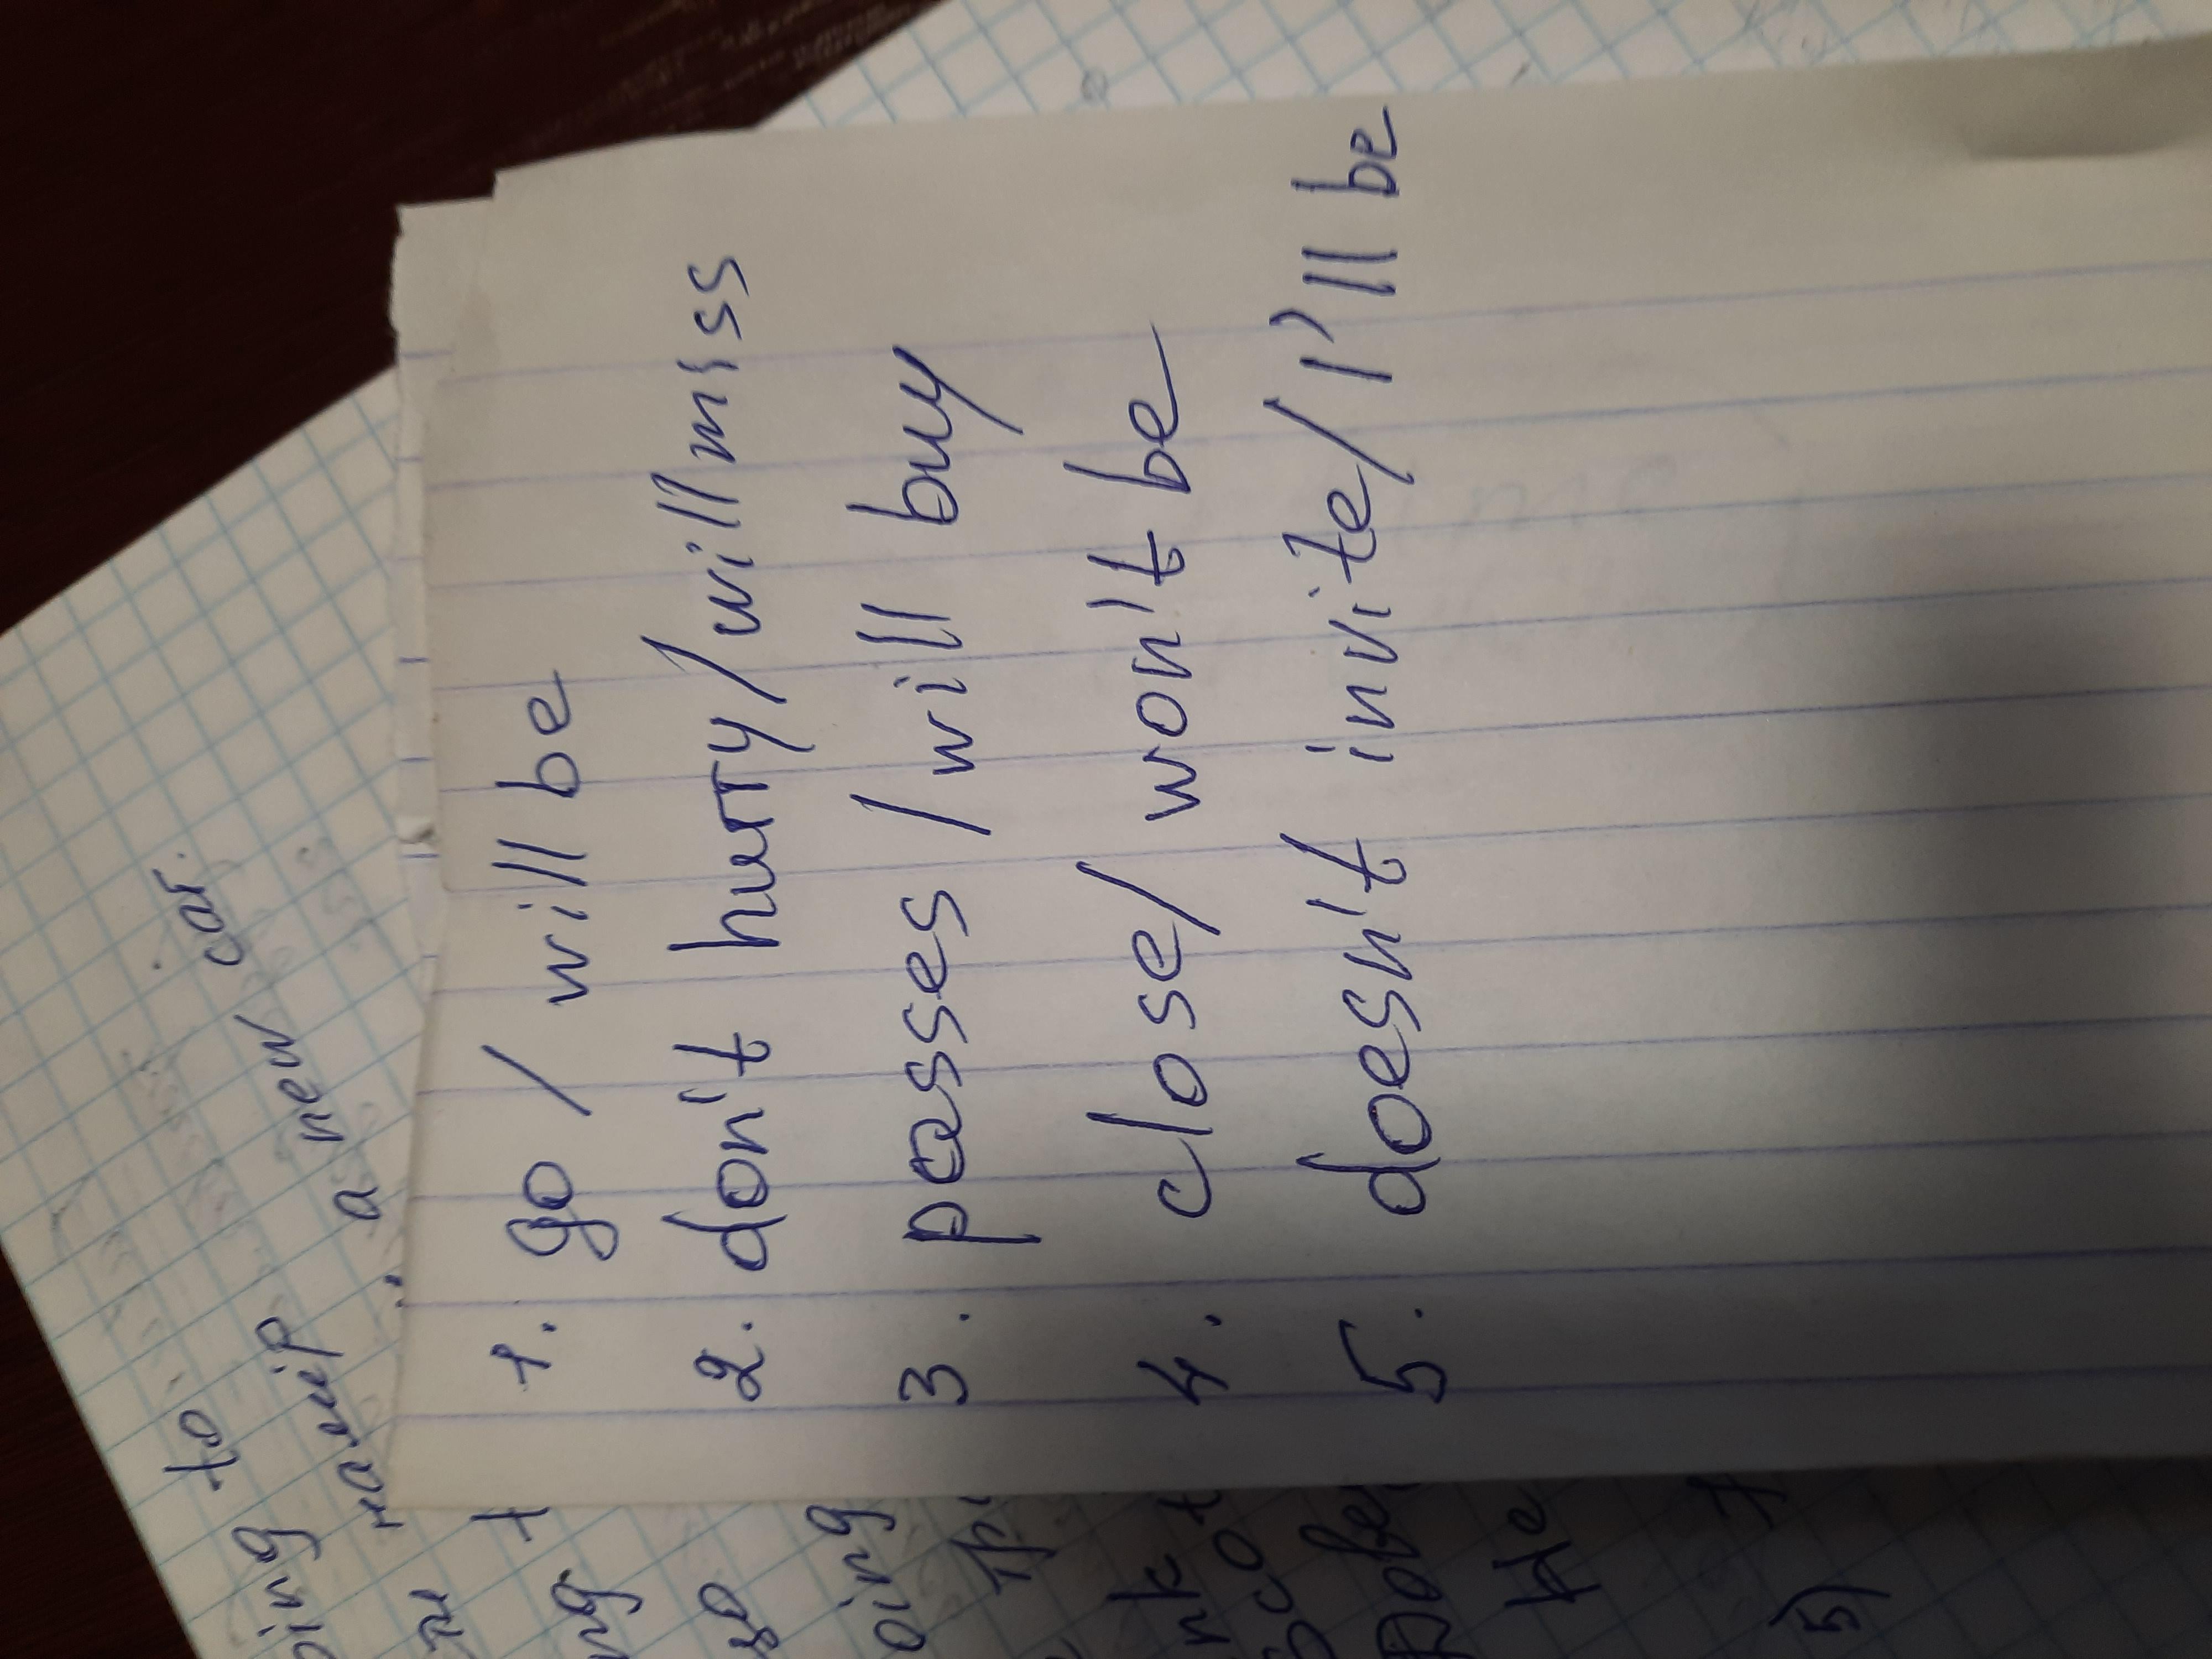 1. go / will be
2. don't hurry/will miss
3. passes /will buy
4. close/ won't be
5. doesn't invite/I'll be
a new car.
to
5)